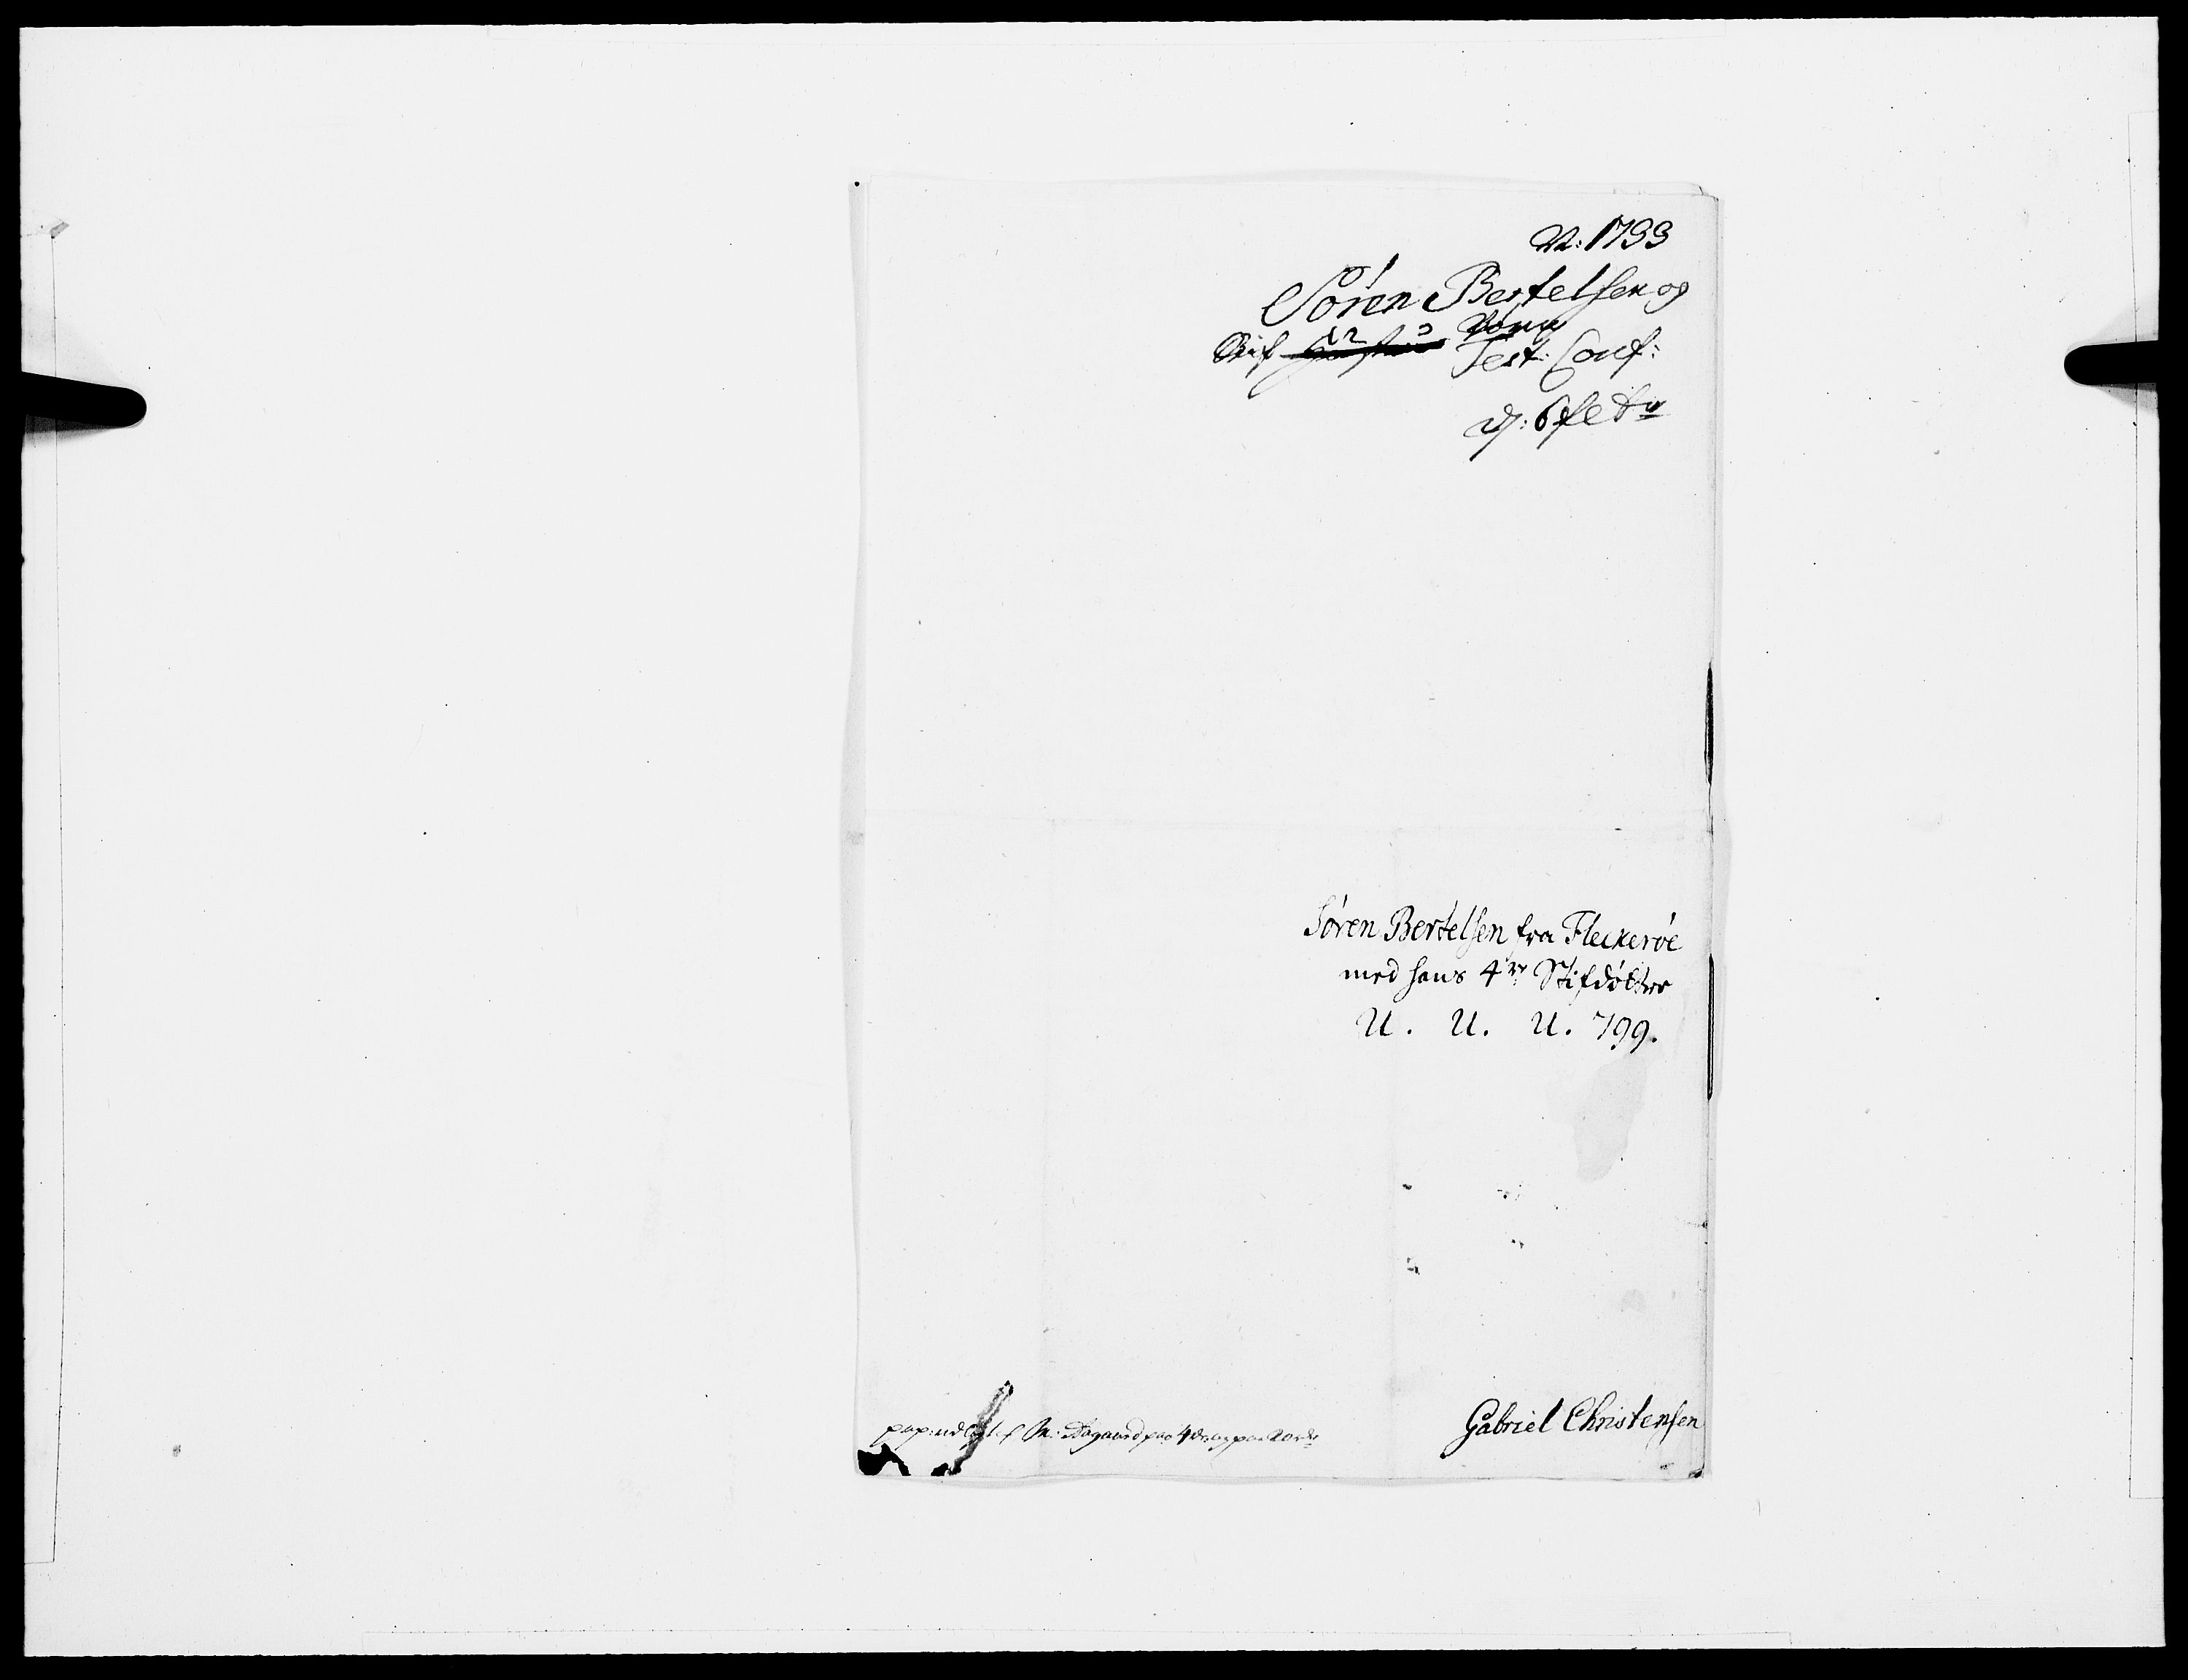 N: 1733
Sören Bertelsen og
Stif Börn
Test: Conf:
d: 6 febr
Sören Bertelsen fra Fleckeröe
med hans 4re Stifdöttre
U. U. U. 799.
Gabriel Christensen